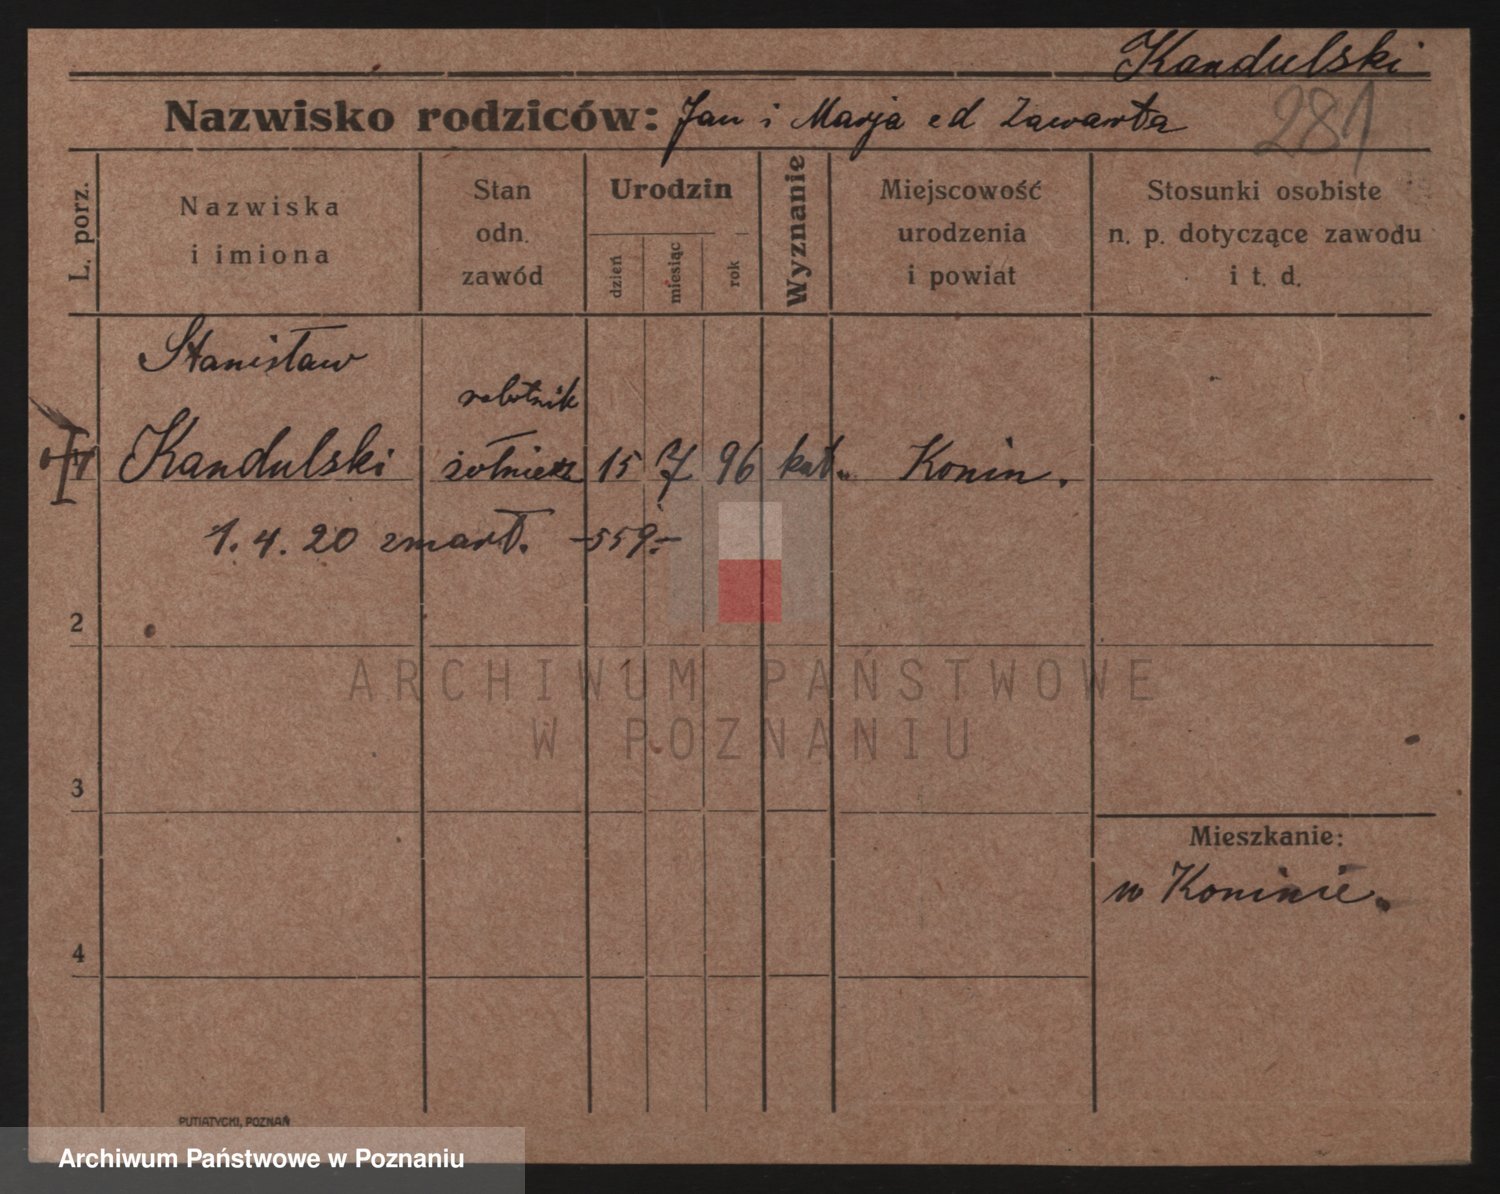 Kandulski
Nazwisko rodziców: Jan i Marja ed Zawarta
281
L. porz.
Nazwiska
i imiona
Stan
odn.
zawód
Urodzin
dzień
miesiąc
rok
Wyznanie
Miejscowość
urodzenia
i powiat
Stosunki osobiste
n. p. dotyczące zawodu
i t. d.
Stanisław
robotnik
Kandulski żołnierz 15 7 96 kat. Konin.
1. 4. 20 zmarł. -559.-
2
ARCHIWUM PAŃSTWOWE
W POZNANIU
3
Mieszkanie:
w Koninie.
4
PUTIATYCKI, POZNAŃ
Archiwum Państwowe w Poznaniu